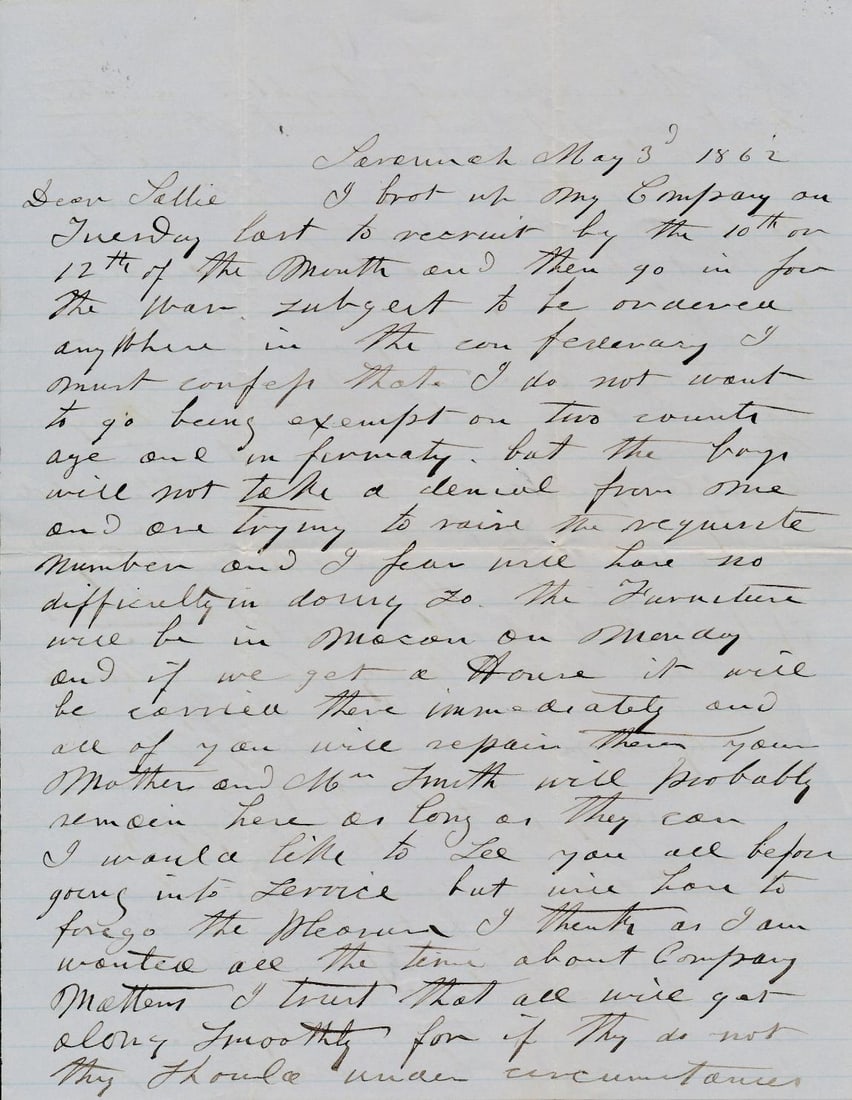 Savannah May 3d 1862
Dear Sallie I brot up my Company on
Tuesday last to recruit by the 10th or
12th of the Month and then go in for
the War. subgect to be ordered
anywhere in the confederacy I
must confess that I do not want
to go being exempt on two counts
age and infirmaty. but the boys
will not take a denial from me
and are trying to raise the requisite
number and I fear will have no
difficulty in doing so. the Furniture
will be in Macon on Monday
and if we get a House it will
be carried there immediately and
all of you will repair there your
Mother and Mrs Smith will probably
remain here as long as they can
I would like to see you all before
going into service but will have to
forego the pleasure I think as I am
wanted all the time about Company
Matters I trust that all will get
along smoothly for if they do not
they should under circumstances